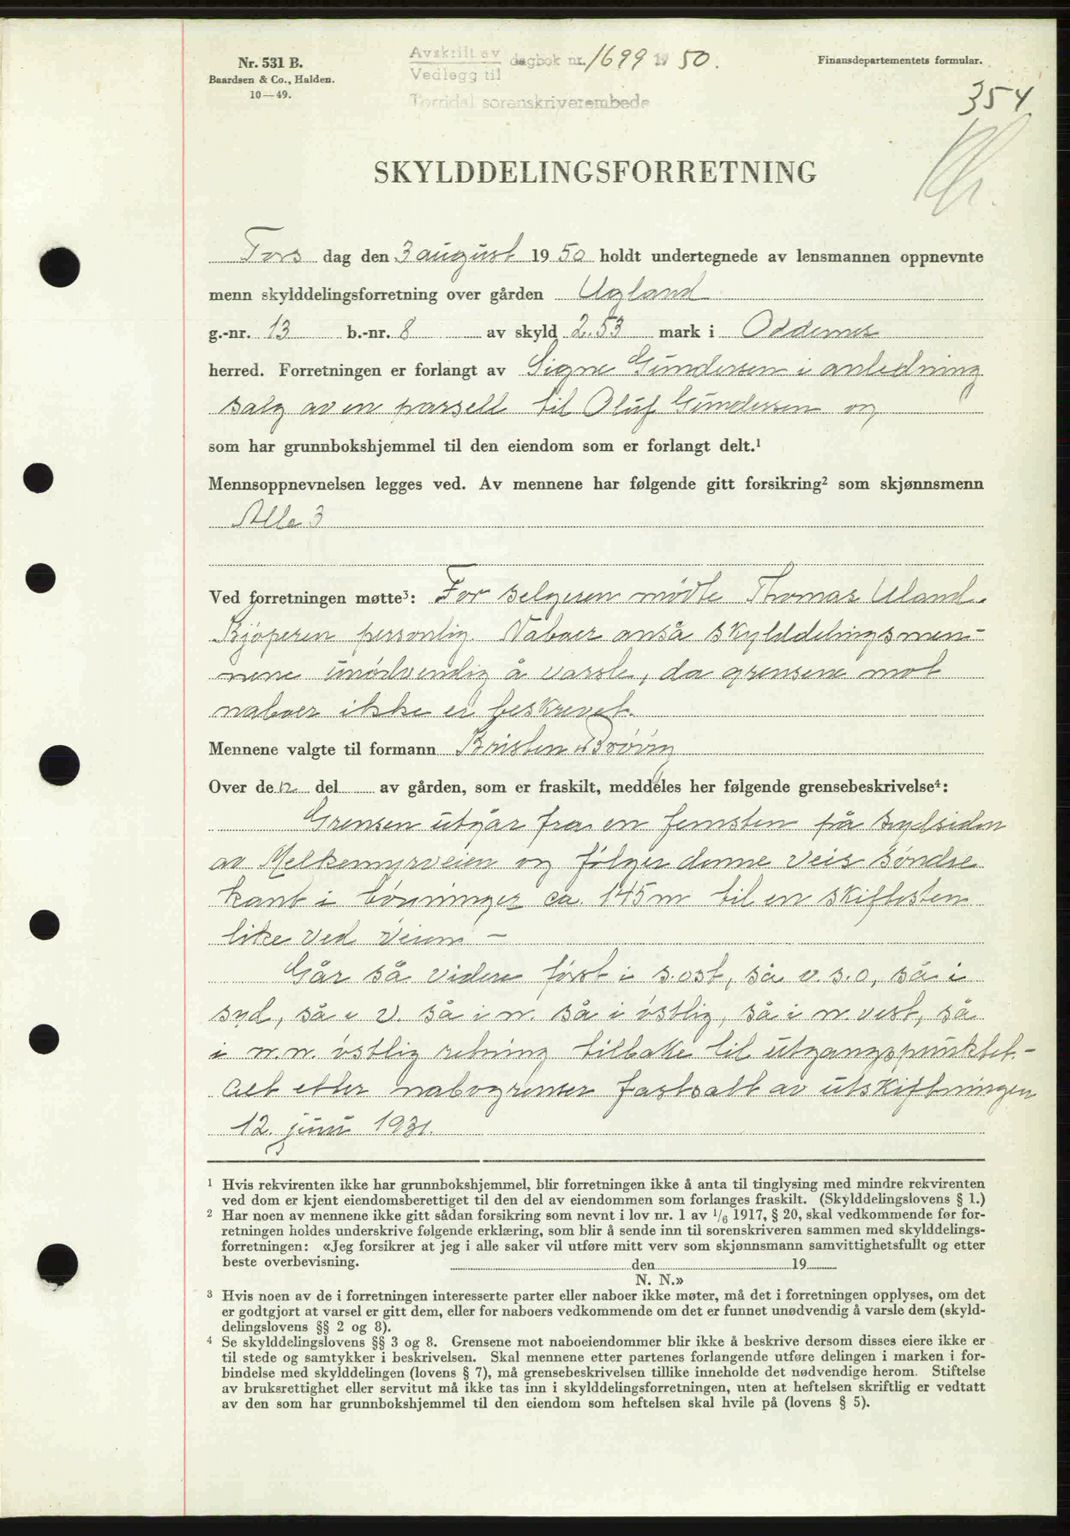 Nr. 531 B.
Baardsen & Co., Halden.
10—49.
Avskrift av
Vedlegg til dagbok nr. 1699 1950.
Torridal sorenskriverembede
Finansdepartementets formular.
354
SKYLDDELINGSFORRETNING
Tors dag den 3 august 1950 holdt undertegnede av lensmannen oppnevnte
menn skylddelingsforretning over gården Ugland
g.-nr. 13 b.-nr. 8 av skyld 2.53 mark i Oddernes
herred. Forretningen er forlangt av Signe Gundersen i anledning
salg av en parsell til Oluf Gundersen og
som har grunnbokshjemmel til den eiendom som er forlangt delt.¹
Mennsoppnevnelsen legges ved. Av mennene har følgende gitt forsikring² som skjønnsmenn
Alle 3
Ved forretningen møtte³: For selgeren mødte Thomas Uland.
Kjøperen personlig. Naboer anså skylddelingsmen-
nene unødvendig å varsle, da grensene mot
naboer ikke er beskrevet.
Mennene valgte til formann Kristen Brøvig
Over de 12 del av gården, som er fraskilt, meddeles her følgende grensebeskrivelse⁴:
Grensen utgår fra en femsten på sydsiden
av Melkemyrveien og følger denne veis søndre
kant i bøyninger ca. 145 m til en skiftesten
like ved veien —
Går så videre først i s.ost, så v.s.o, så i
syd, så i v. så i n. så i østlig, så i n.vest, så
i n.n. østlig retning tilbake til utgangspunktet.—
Alt etter nabogrenser fastsatt av utskiftningen
12. juni 1931.
¹ Hvis rekvirenten ikke har grunnbokshjemmel, blir forretningen ikke å anta til tinglysing med mindre rekvirenten
ved dom er kjent eiendomsberettiget til den del av eiendommen som forlanges fraskilt. (Skylddelingslovens § 1.)
² Har noen av mennene ikke gitt sådan forsikring som nevnt i lov nr. 1 av 1/6 1917, § 20, skal vedkommende før for-
retningen holdes underskrive følgende erklæring, som blir å sende inn til sorenskriveren sammen med skylddelings-
forretningen: «Jeg forsikrer at jeg i alle saker vil utføre mitt verv som skjønnsmann samvittighetsfullt og etter
beste overbevisning. den 19
N. N.»
³ Hvis noen av de i forretningen interesserte parter eller naboer ikke møter, må det i forretningen opplyses, om det
er godtgjort at varsel er gitt dem, eller for naboers vedkommende om det er funnet unødvendig å varsle dem (skyld-
delingslovens §§ 2 og 8).
⁴ Se skylddelingslovens §§ 3 og 8. Grensene mot naboeiendommer blir ikke å beskrive dersom disses eiere ikke er
til stede og samtykker i beskrivelsen. Skal mennene etter partenes forlangende utføre delingen i marken i for-
bindelse med skylddelingen (lovens § 7), må grensebeskrivelsen tillike inneholde det nødvendige herom. Stiftelse
av bruksrettighet eller servitut må ikke tas inn i skylddelingsforretningen, uten at heftelsen skriftlig er vedtatt
av den som har grunnbokshjemmel til den eiendom som heftelsen skal hvile på (lovens § 5).